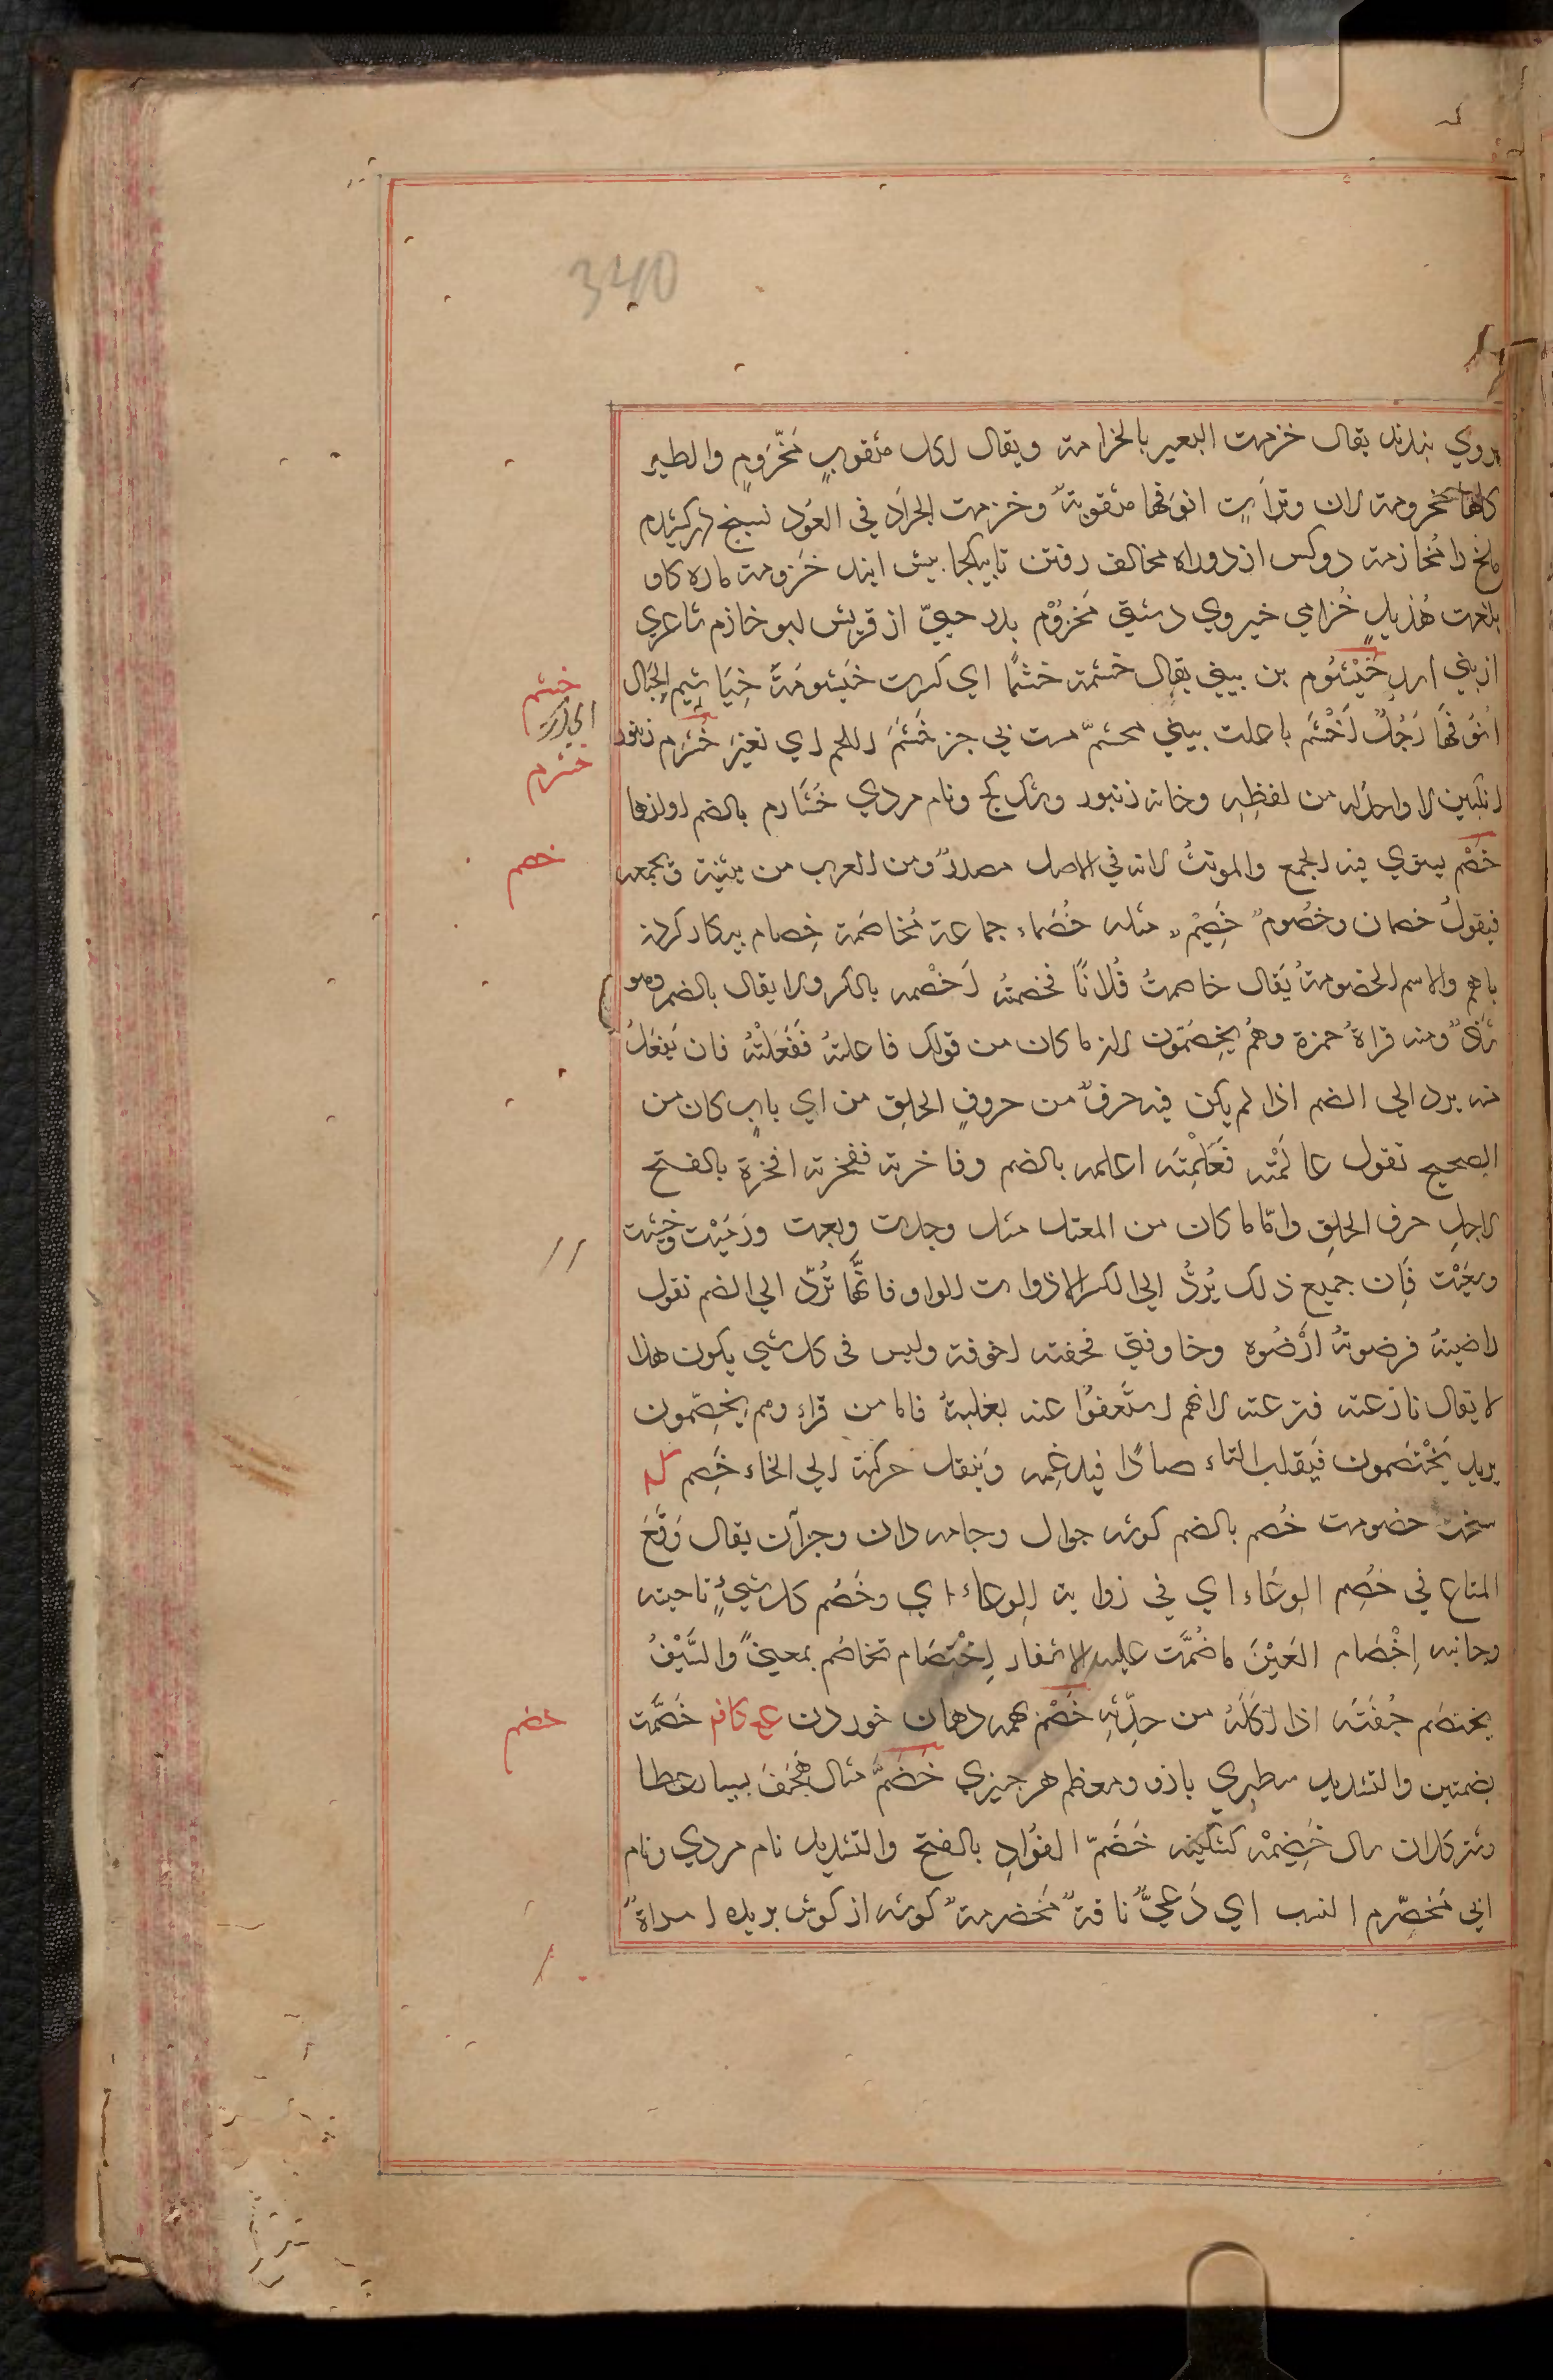 340
بروي بندند يقال خزمت البعير بالخزامة ويقال لكل مثقوبٍ مَخْزومٍ والطير
كلها مخزومة لان وترات انوفها مثقوبةٌ وخزمت الجرادَ في العُود نسيخ دركشيدم
ملخ را مُخازمة دوكس از دو راه مخالف رفتن تا بيكجا بيش ايند خَزومة ماده كاو
بلغت هُذيلٍ خُزامي خيروي دشتي مَخزُوْم بدر حيّ از قريش ابو خازم شاعري
از بني اسد خَيْشُوم بن بيني يقال خشمه خشمًا اي كسرت خَيْشومَهُ خَيَاشيم الجِبَال
اُنوُفُهَا رَجُلٌ اَخْشَم با علت بيني مخشمّ مست بي جز خَشَمَ اللحم اي تغيّرَ خَشْرَم زنبور
انكبين لا واحد له من لفظِهِ وخانه زنبور وسنك كج ونام مردي خُشَارم بالضم اوازها
خَصْم يستوي فيه الجمع والمونثُ لانه في الاصل مصدرٌ ومن العرب من يثنيه ويجمعه
فيقولُ خصمان وخصُومٌ خَصِيْمٌ مثله خُصَماء جماعة مُخاصَمة خِصام بيكار كردن
باهم والاسم الخصومة يُقال خاصمتُ فُلانًا فخصمتُه اَخْصِمه بالكسر ولا يقال بالضم وهو
شاذٌ ومنه قراةُ حمزة وهُم يخِصمّون لان ما كان من قولك فاعلتهُ فَفَعَلْتُهُ فان يَفعَلُ
منه يرد الي الضم اذا لم يكن فيه حرفٌ من حروفِ الحلقِ من اي بابٍ كان من
الصحيح تقول عالَمْتُه فَعَلَمْتُه اعلمه بالضم وفاخرته ففخرته افخرة بالفتح
لاجلِ حرف الحلقِ وامّا ما كان من المعتل مثل وجدت وبعت ورَميْت وخشيت
وسَعَيْت فاِن جميع ذلك يُردُّ الي الكسر الا ذوات الواو فانَّها تُردّ الي الضم تقول
راضيتهُ فرضوتهُ ارْضُوه وخاوفني فخفته اخوفه وليس في كل شي يكون هذا
لا يقال نازعته فنزعته لانهم استَغنوُا عنه بغلبتهُ فاما من قراء وهم يَخِصّمون
يريد يَخْتصَمون فيَقلب التاء صادًا فيدغِمه وينقل حركته الي الخاء خَصِم
سخت خصومت خُصم بالضم كوشه جوال وجامه دان وجزآن يقال وَقَعَ
المتاع في خصُم الوِعَاء اي في زاوية الوِعاء اي وخُصْم كل شيءٍ ناحيته
وجانبه اِخْصَام العَيْنَ ما ضُمَّت عليه الاشفار اِخْتِصَام تخاصُم بمعنيً والسَّيْفُ
يختصَم جُفنَه اذا اَكَلَهُ من حِدّتِهِ خَضْم همه دهان خوردن خُضمّة
بضمتين والتشديد سطبري بازو ومعظم هر جيزي خِضَمّ مثال هِجَفّ بسيار عطا
وشتر كلان سال خَضِيْمَه خَضَّمّ الفوُادِ بالفتح والتشديد نام مردي ونام
ابي مُخَضْرم النسب اي دَعيٌّ ناقةٌ مُخضرمةٌ كوشه از كوش بريده امراةٌ
خشم
خشرم
خصم
خضم